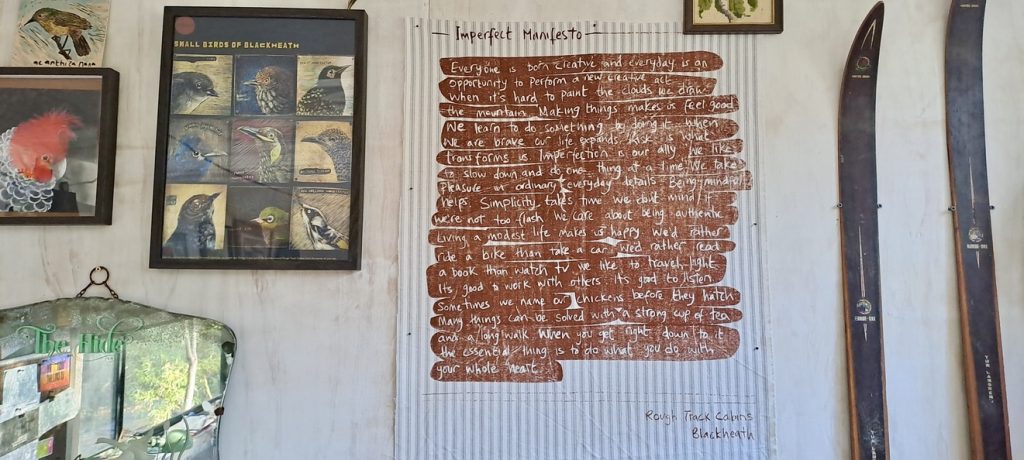 acanthiza nana
SMALL BIRDS OF BLACKHEATH
The Hide
Imperfect Manifesto
Everyone is born creative and everyday is an
opportunity to perform a new creative act
when it's hard to paint the clouds we draw
the mountains Making things makes is feel good
We learn to do something by doing it when
we are brave our life expands Risk is what
transforms us Imperfection is our ally We like
to slow down and do one thing at a time We take
pleasure in ordinary everyday details Being mindful
helps Simplicity takes time We don't mind if
we're not too flash We care about being authentic
Living a modest life makes us happy We'd rather
ride a bike than take a car We'd rather read
a book than watch tv We like to travel light
It's good to work with others It's good to listen
Sometimes we name our chickens before they hatch
Many things can be solved with a strong cup of tea
and a long walk When you get right down to it
the essential thing is to do what you do with
your whole heart
Rough Track Cabins
Blackheath